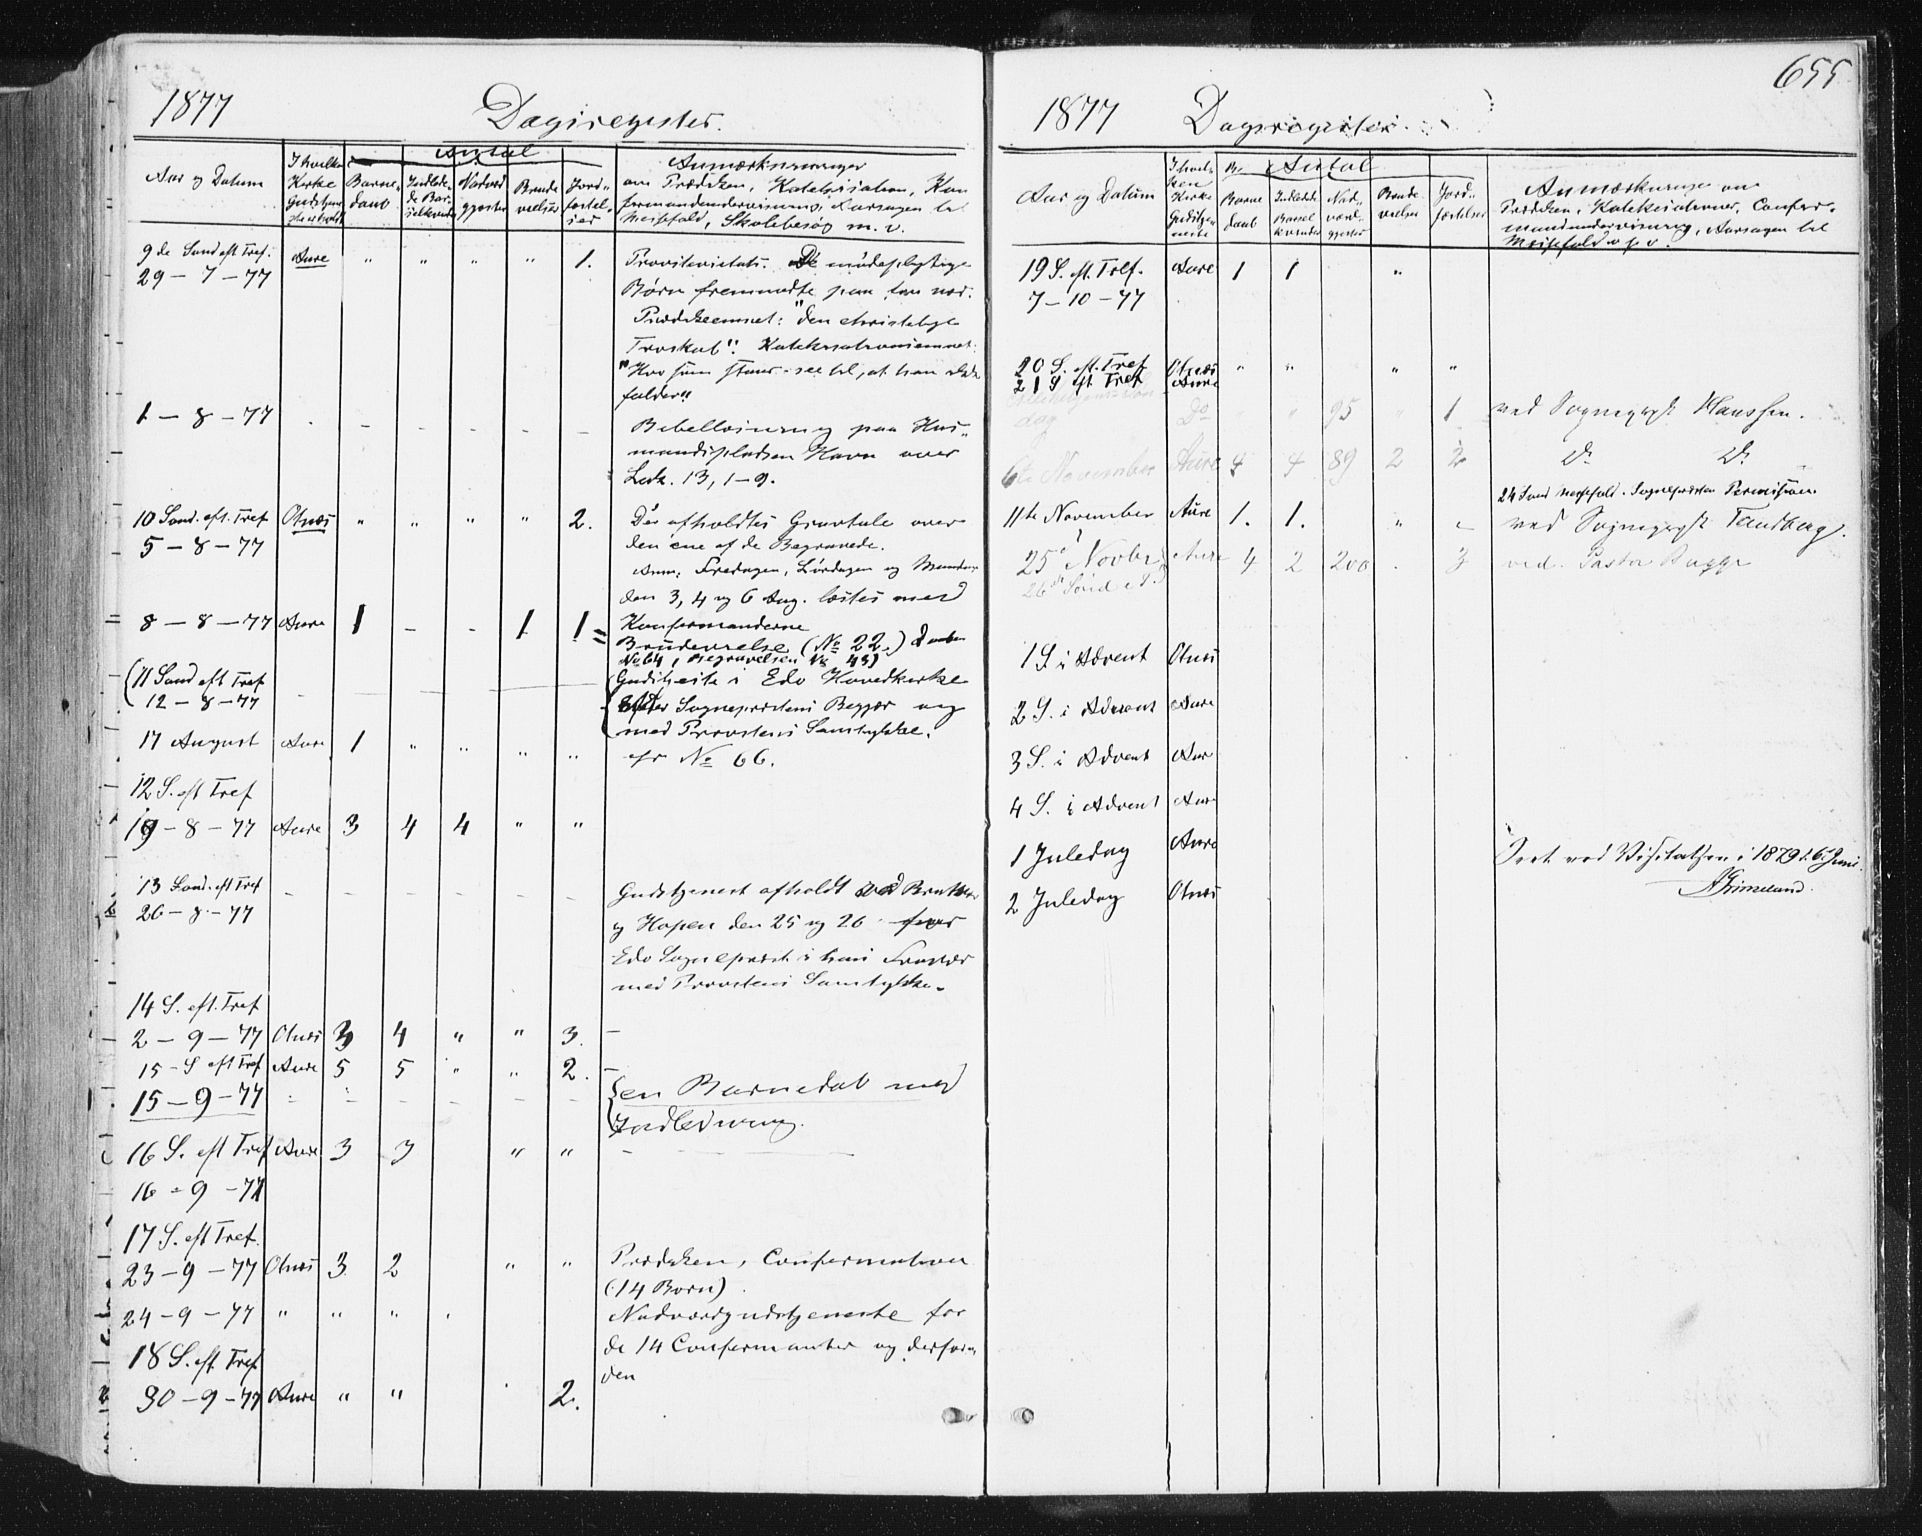 1877 Dagsregister.
Aar og Datum
I hvilken Kirke Gudstjeneste er holdt
Antal
Barnedaab
Indledede Barselkvinder
Nadverdgjester
Brudevielser
Jordfæstelser
Anmærkninger
om Prædiken, Katekisation, Konfirmandundervisning, Aarsagen til Messefald, Skolebesøg m. v.
9de Sønd eft Tref. Aure " " " " 1. Provstevisitats. De mødepligtige
29 – 7 – 77 Børn fremmødte paa fem nær.
Prædikeemnet: "den christelige
Troskab". Katekisationsemnet:
"Hvo som staar – see til, at han ikke
falder".
1 – 8 – 77 Bibellæsning paa Hus-
mandspladsen Havn over
Luk. 13, 1–9.
10 Sønd. eft. Tref Otnæs " " " " 2. Der afholdtes Gravtale over
5 – 8 – 77 den ene af de Begravede.
Anm: Fredagen, Lørdagen og Mandag
den 3, 4 og 6 Aug. læstes med
8 – 8 – 77 Aure 1 – – 1 1 = Konfirmanderne
Brudevielse (No 22.) Daaben
No 64, Begravelsen No 43)
(11 Sønd eft Tref Gudstjeneste i Edø Hovedkirke
12 – 8 – 77 efter Sognepræstens Begjær og
med Provstens Samtykke.
17 August Aure 1 " " " " cfr No 66.
12 S. eft Tref
19 – 8 – 77 Aure 3 4 4 " "
13 Sønd. eft Tref – – – – – – Gudstjenest afholdt ved
26 – 8 – 77 og Hopen den 25 og 26 for
Edø Sognepræst i hans Fravær
med Provstens Samtykke.
14 S. eft. Tref
2 – 9 – 77 Otnæs 3 4 " " 3. –
15 – S eft Tref Aure 5 5 " " 2. –
15 – 9 – 77 en Barnedaab med
Indledning.
16 S. eft Tref Aure 3 3 " " –
16 – 9 – 77
17 S. eft Tref.
23 – 9 – 77 Otnæs 3 2 " " Prædiken, Confirmation
(14 Børn).
24 – 9 – 77 " " " Nadverdgudstjeneste for
de 14 Confirmanter og
18 S. eft. Tref
30 – 9 – 77 Aure " " 2.
655
1877 Dagsregister.
Aar og Datum
I hvilken Kirke Gudstjeneste
Antal
Barnedaab
Indledede Barselkvinder
Nadverdgjester
Brudevielser
Jordfæstelser
Anmærkninger om
Prædiken, Katekisationer, Confirmandundervisning, Aarsagen til
Messefald o s v.
19 S. eft. Tref. Aure 1 1 "
7 – 10 – 77
20 S. eft. Tref Otnæs " " " "
21 S eft. Tref Aure
Do " " 95 " 1 ved Sogneprst Hanssen.
dag
6te November Aure 4 4 89 2 2 Do Do
24 Sønd Messefald. Sognepræsten Permission
11te November Aure 1. 1. " – ved Sogneprst Tandberg.
25 Novbr Aure 4 2 200 . 3 ved Pastor Bugge
26de Sønd e T.
1 S i Advent Otnæs
2 S. i Advent Aure
3 S. i Advent Aur
4 S. i Advent Aure
1 Juledag Aure
2 Juledag Otnæs
Seet ved Visitatsen i 1879 d. 6 Juni.
Grimelund.